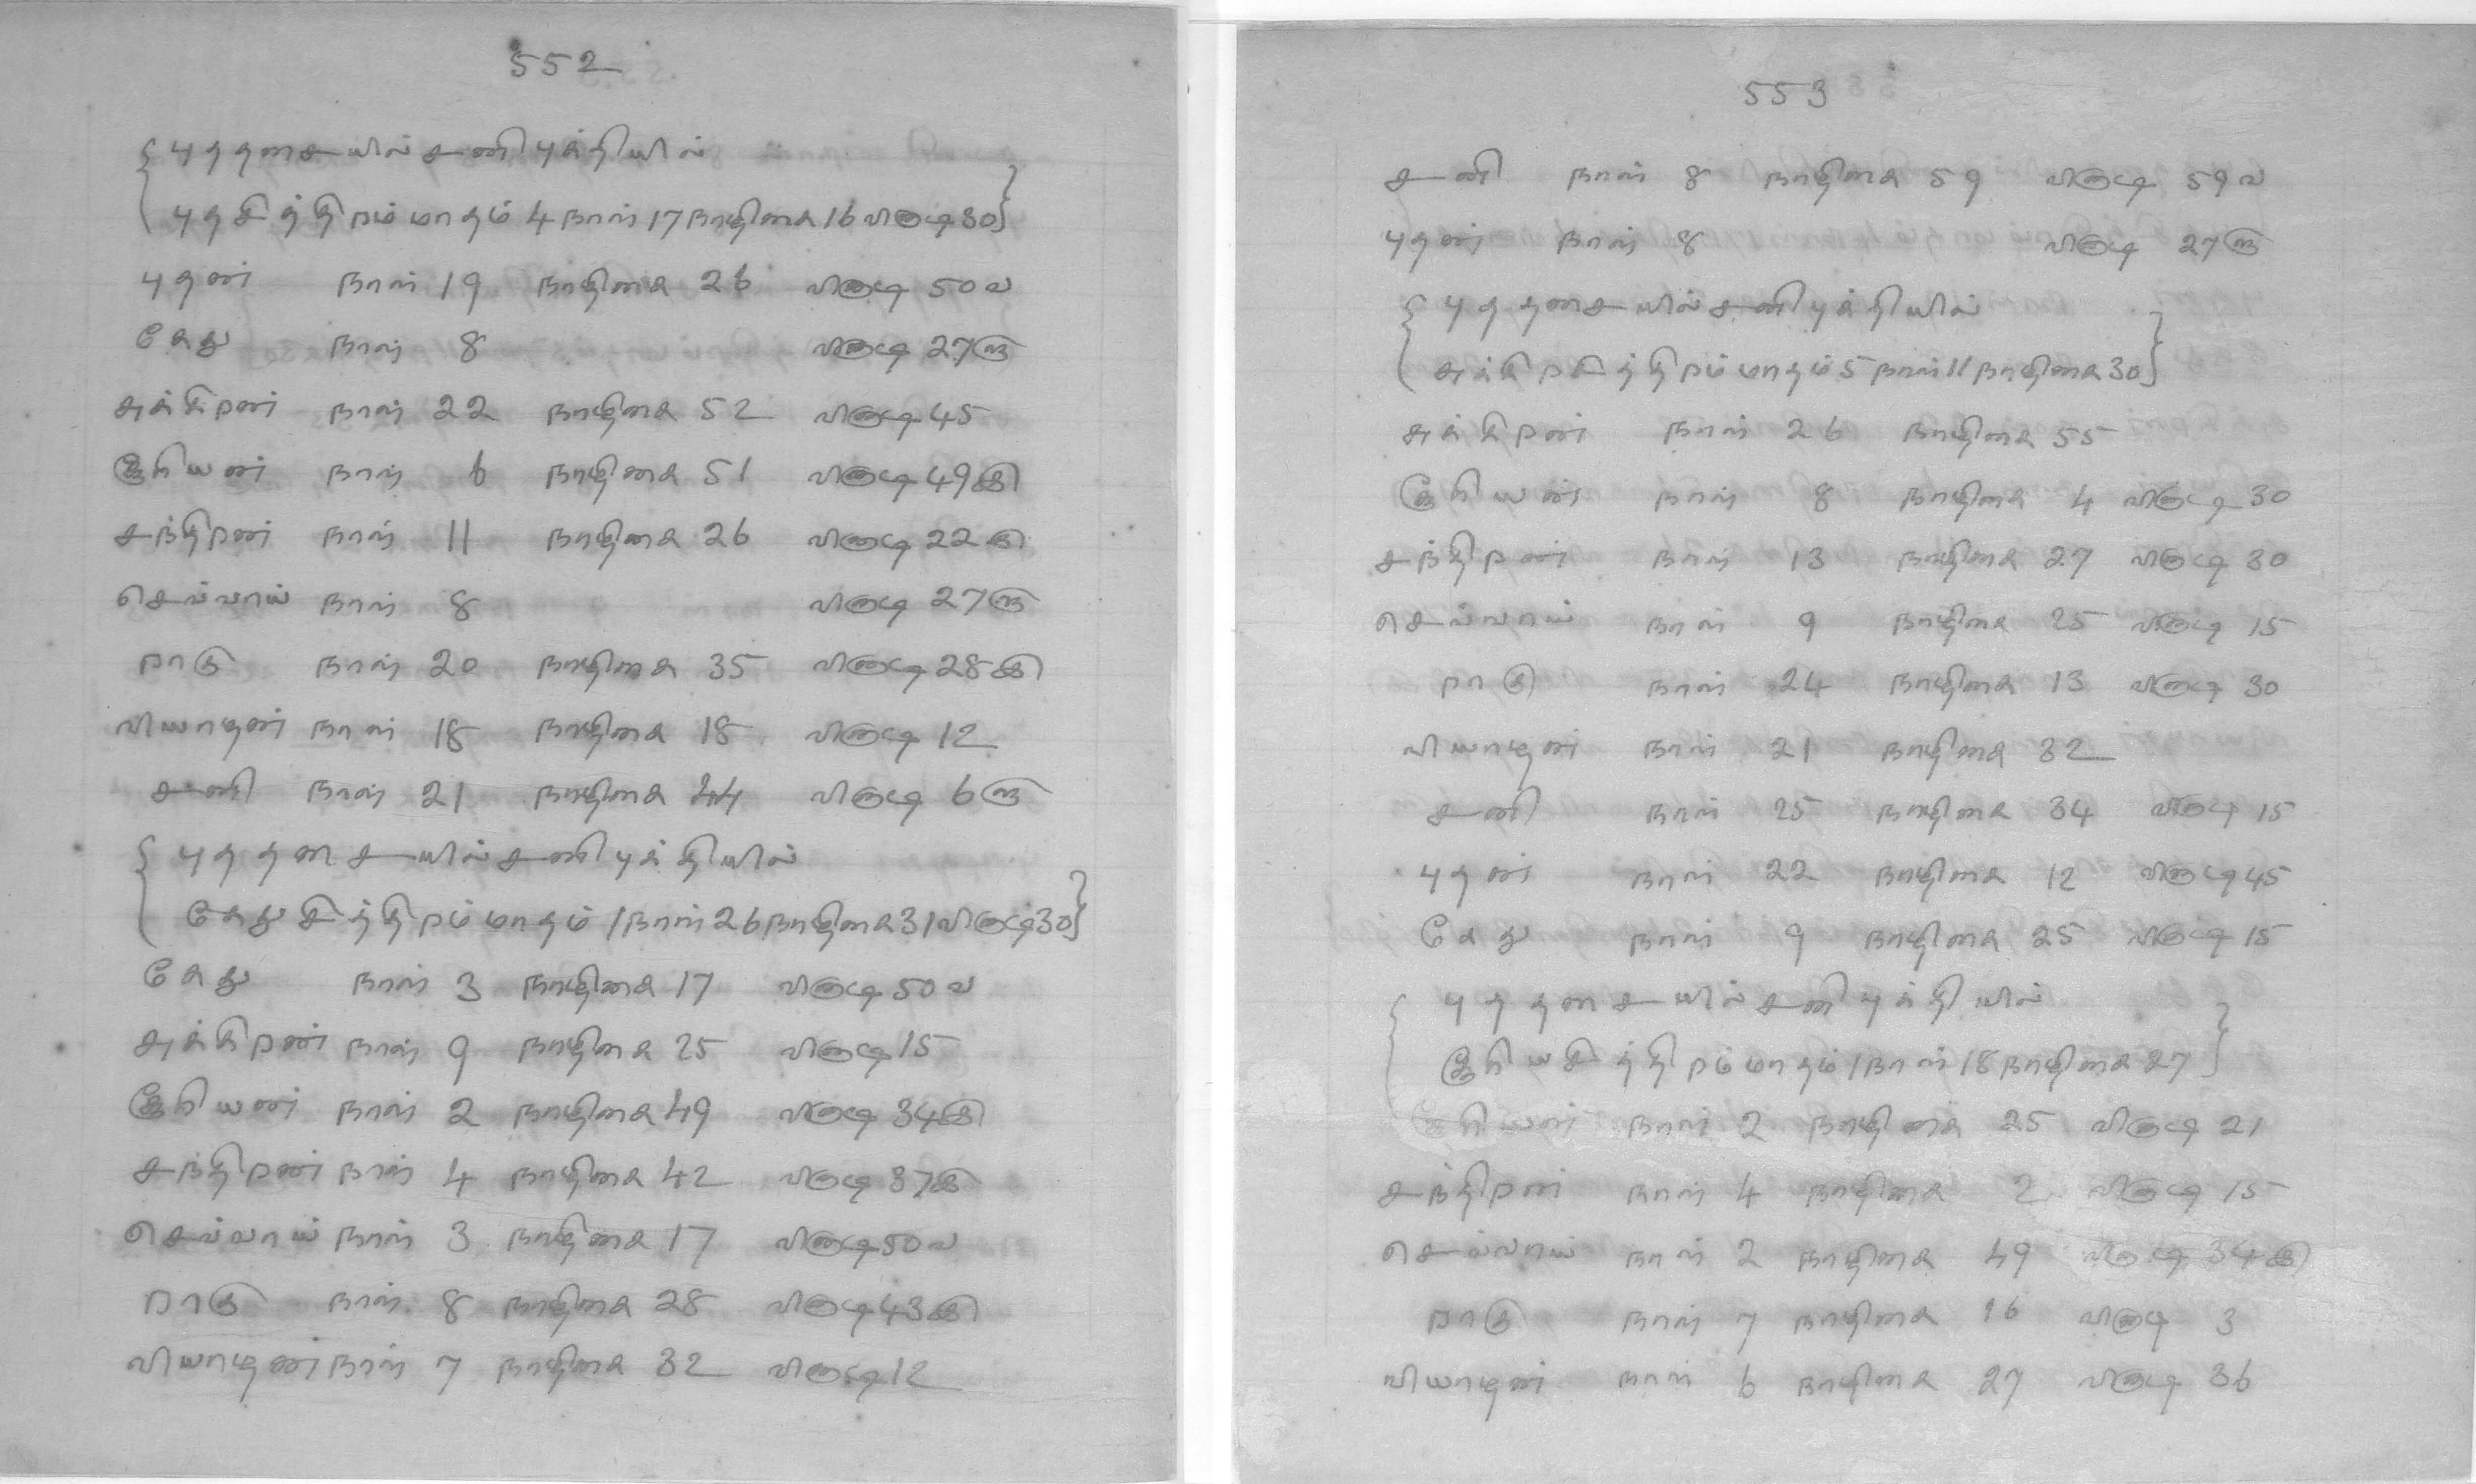 552
{புத தசையில் சனி புக்தியில்
புத சித்திரம் மாதம் 4 நாள் 17 நாழிகை 16 விநாடி 30}
புதன் நாள் 19 நாழிகை 26 விநாடி 50 வ
கேது நாள் 8 விநாடி 27 ரு
சுக்கிரன் நாள் 22 நாழிகை 52 விநாடி 45
சூரியன் நாள் 6 நாழிகை 51 விநாடி 49
சந்திரன் நாள் 11 நாழிகை 26 விநாடி 22
செவ்வாய் நாள் 8 விநாடி 27 ரு
ராகு நாள் 20 நாழிகை 35 விநாடி 28
வியாழன் நாள் 18 நாழிகை 18 விநாடி 12
சனி நாள் 21 நாழிகை 44 விநாடி 6 ரு
{புத தசையில் சனி புக்தியில்
கேது சித்திரம் மாதம் 1 நாள் 26 நாழிகை 31 விநாடி 30}
கேது நாள் 3 நாழிகை 17 விநாடி 50 வ
சுக்கிரன் நாள் 9 நாழிகை 25 விநாடி 15
சூரியன் நாள் 2 நாழிகை 49 விநாடி 34
சந்திரன் நாள் 4 நாழிகை 42 விநாடி 37
செவ்வாய் நாள் 3 நாழிகை 17 விநாடி 50 வ
ராகு நாள் 8 நாழிகை 28 விநாடி 43
வியாழன் நாள் 7 நாழிகை 32 விநாடி 12
553
சனி நாள் 8 நாழிகை 59 விநாடி 59 வ
புதன் நாள் 8 விநாடி 27 ரு
{புத தசையில் சனி புக்தியில்
சுக்கிர சித்திரம் மாதம் 5 நாள் 11 நாழிகை 30}
சுக்கிரன் நாள் 26 நாழிகை 55
சூரியன் நாள் 8 நாழிகை 4 விநாடி 30
சந்திரன் நாள் 13 நாழிகை 27 விநாடி 30
செவ்வாய் நாள் 9 நாழிகை 25 விநாடி 15
ராகு நாள் 24 நாழிகை 13 விநாடி 30
வியாழன் நாள் 21 நாழிகை 32
சனி நாள் 25 நாழிகை 34 விநாடி 15
புதன் நாள் 22 நாழிகை 12 விநாடி 45
கேது நாள் 9 நாழிகை 25 விநாடி 15
{புத தசையில் சனி புக்தியில்
சூரிய சித்திரம் மாதம் 1 நாள் 18 நாழிகை 27}
சூரியன் நாள் 2 நாழிகை 25 விநாடி 21
சந்திரன் நாள் 4 நாழிகை 2 விநாடி 15
செவ்வாய் நாள் 2 நாழிகை 49 விநாடி 34
ராகு நாள் 7 நாழிகை 16 விநாடி 3
வியாழன் நாள் 6 நாழிகை 27 விநாடி 36